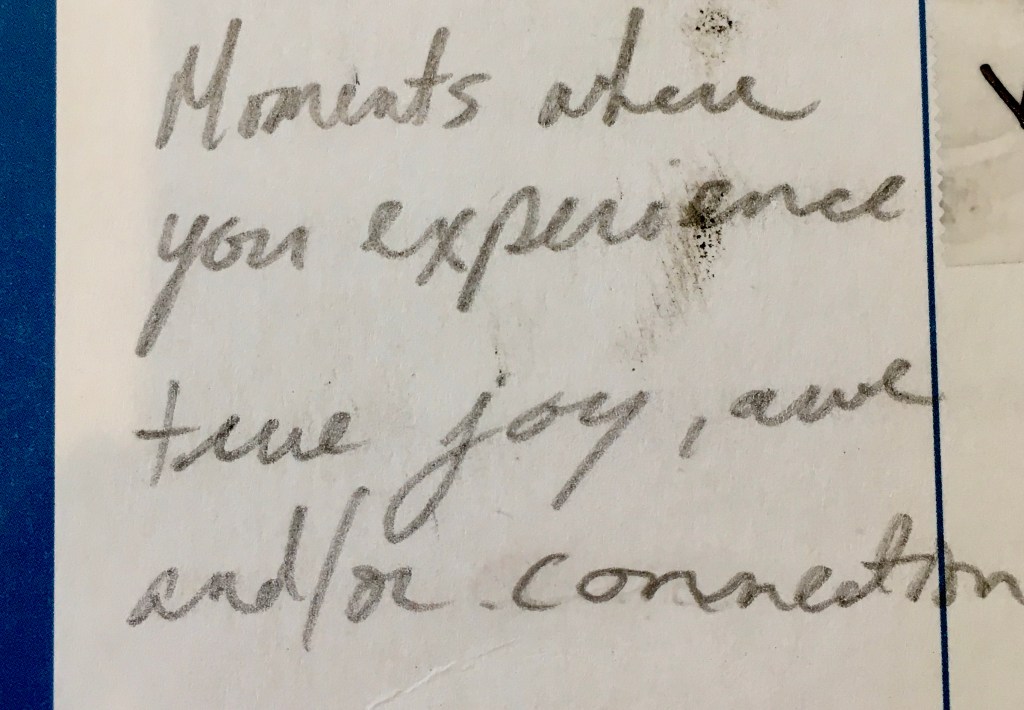 Moments where
you experience
true joy, awe
and/or connection